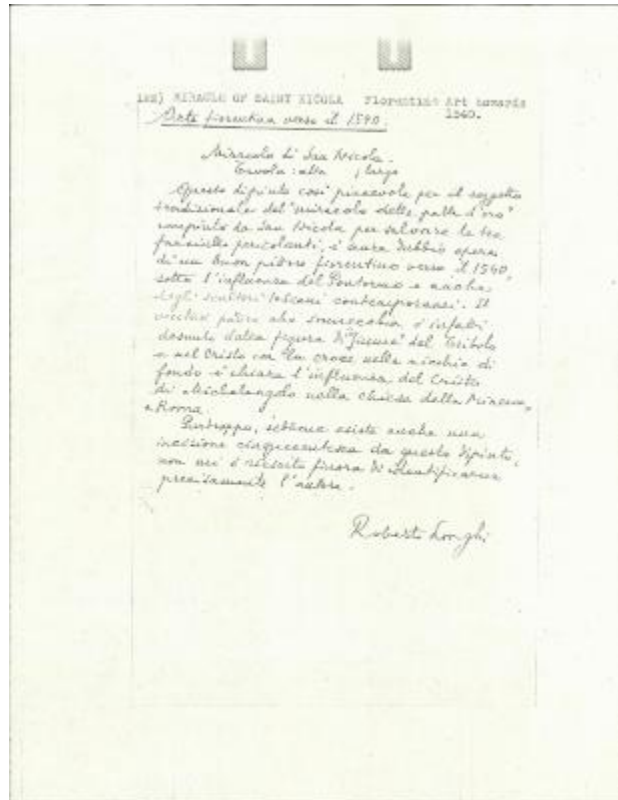 MIRACLE OF SAINT NICOLA Florentine Art towards
1540.
Arte fiorentina verso il 1540.
Miracolo di San Nicola.
Tavola: alta ; larga
Questo dipinto così piacevole per il soggetto
tradizionale del "miracolo delle palle d'oro"
compiuto da San Nicola per salvare le tre
fanciulle pericolanti, è senza dubbio opera
di un buon pittore fiorentino verso il 1540,
sotto l'influenza del Pontormo e anche
degli scultori toscani contemporanei. Il
vecchio padre che sonnecchia, è infatti
desunto dalla figura di "Fiesole" del Tribolo
e nel Cristo con la croce nella nicchia di
fondo è chiara l'influenza del Cristo
di Michelangelo nella chiesa della Minerva
a Roma.
Purtroppo, sebbene esista anche una
incisione cinquecentesca da questo dipinto,
non mi è riuscito finora di identificarne
precisamente l'autore.
Roberto Longhi